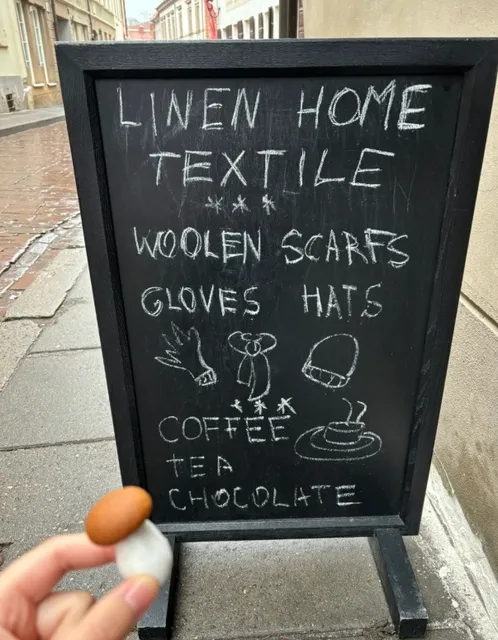 LINEN HOME
TEXTILE
***
WOOLEN SCARFS
GLOVES HATS
***
COFFEE
TEA
CHOCOLATE